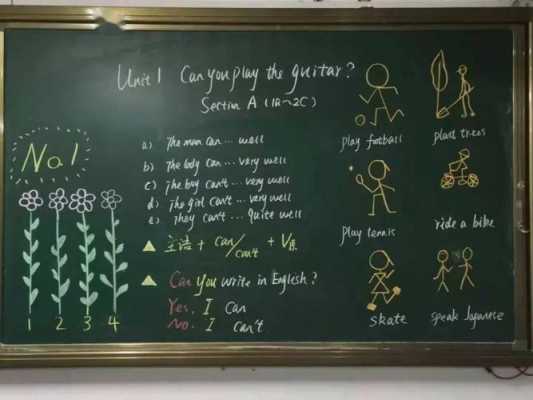 Unit 1 Can you play the guitar?
Section A (1a~2c)
No.1
a) The man can ... well
b) The lady can ... very well
c) The boy can't ... very well
d) The girl can't ... very well
e) They can't ... quite well
▲ 主语 + can/can't + V原
▲ Can you write in English?
Yes. I can
No. I can't
1 2 3 4
play football
plant trees
play tennis
ride a bike
skate
speak Japanese